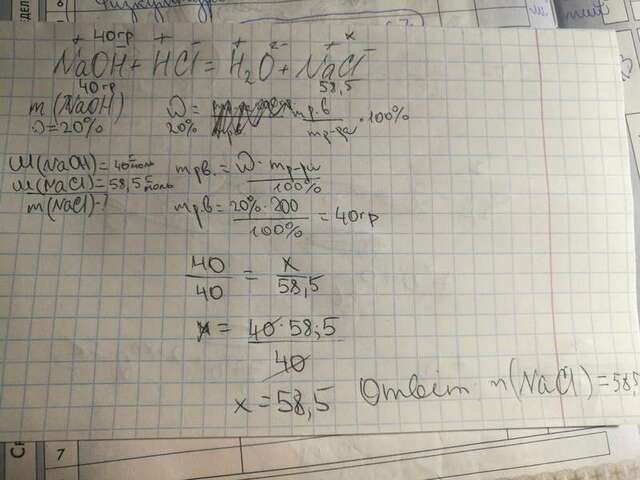 + 40гр - + - + 2- + x -
NaOH + HCl = H₂O + NaCl
40гр 58,5
m (NaOH)
ω = 20%
ω = mр.в / mр-ра · 100%
20%
M(NaOH) = 40 г/моль
M(NaCl) = 58,5 г/моль
m(NaCl) - ?
mр.в. = ω · mр-ра / 100%
mр.в = 20% · 200 / 100% = 40гр
40 / 40 = x / 58,5
x = 40 · 58,5 / 40
x = 58,5
Ответ m(NaCl) = 58,5
7